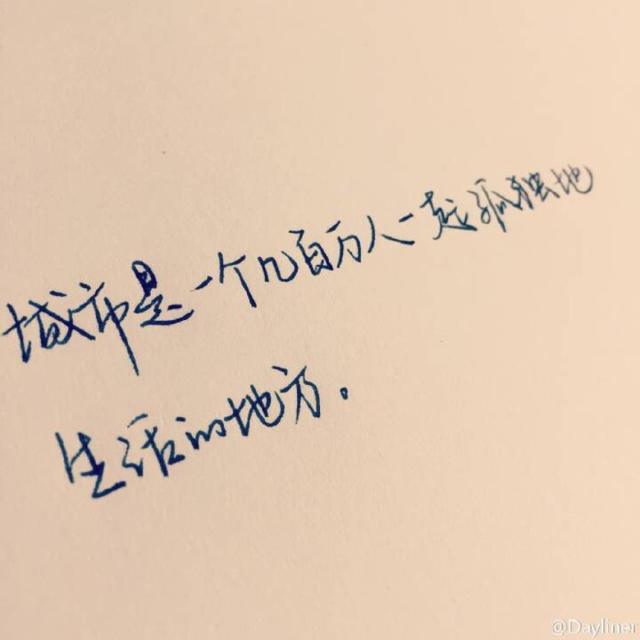 城市是一个几百万人一起孤独地
生活的地方。
@Dayliner